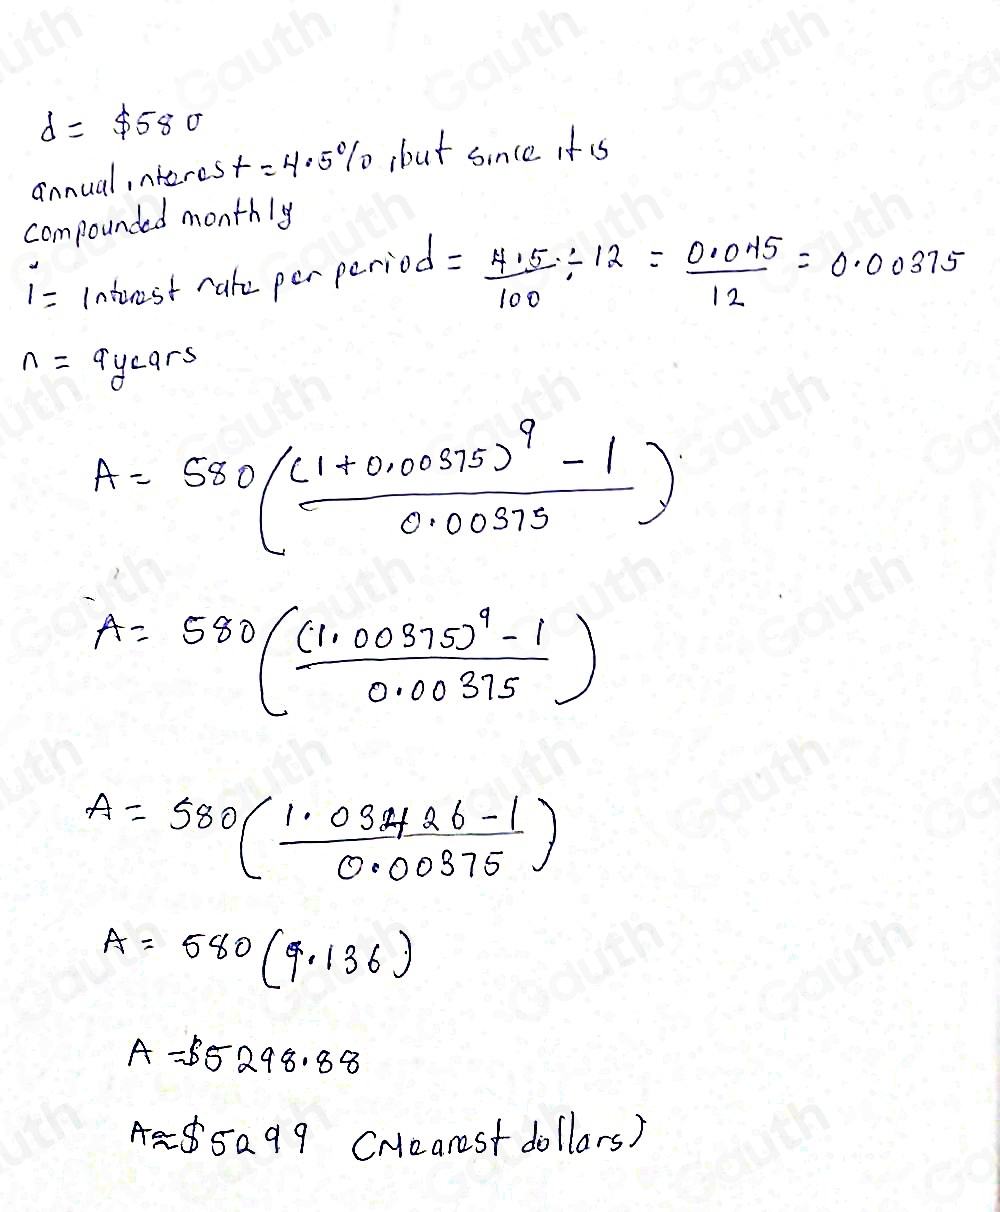 d = $580
annual interest = 4.5%, but since it is
compounded monthly
i = Interest rate per period = 4.5/100 ÷ 12 = 0.045/12 = 0.00375
n = 9years
A = 580 (((1+0.00375)^9 - 1)/0.00375)
A = 580 (((1.00375)^9 - 1)/0.00375)
A = 580 ((1.03426 - 1)/0.00375)
A = 580 (9.136)
A = $5298.88
A ≈ $5299 (Nearest dollars)
Gauth